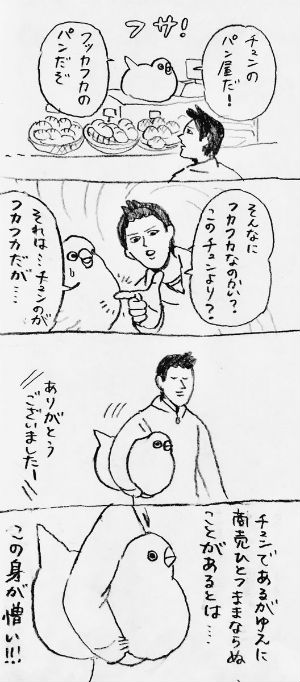 チュンの
パン屋だ!
フサ!
フッカフカの
パンだぞ
そんなに
フカフカなのかい?
このチュンより?
それは…チュンのが
フカフカだが…
ありがとう
ございましたー
チュンであるがゆえに
商売ひとつままならぬ
ことがあるとは……
この身が憎い!!!